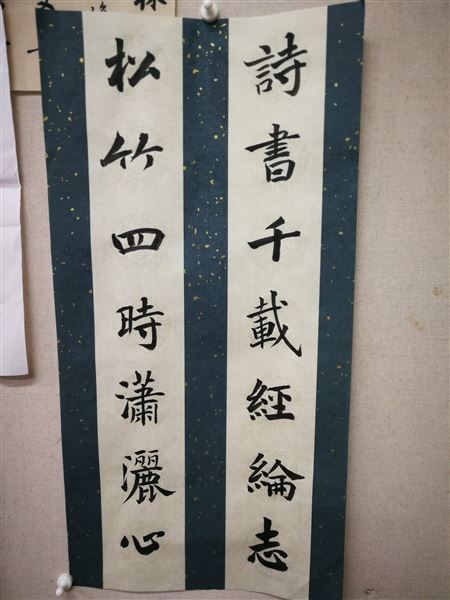 詩書千載經綸志
松竹四時瀟灑心